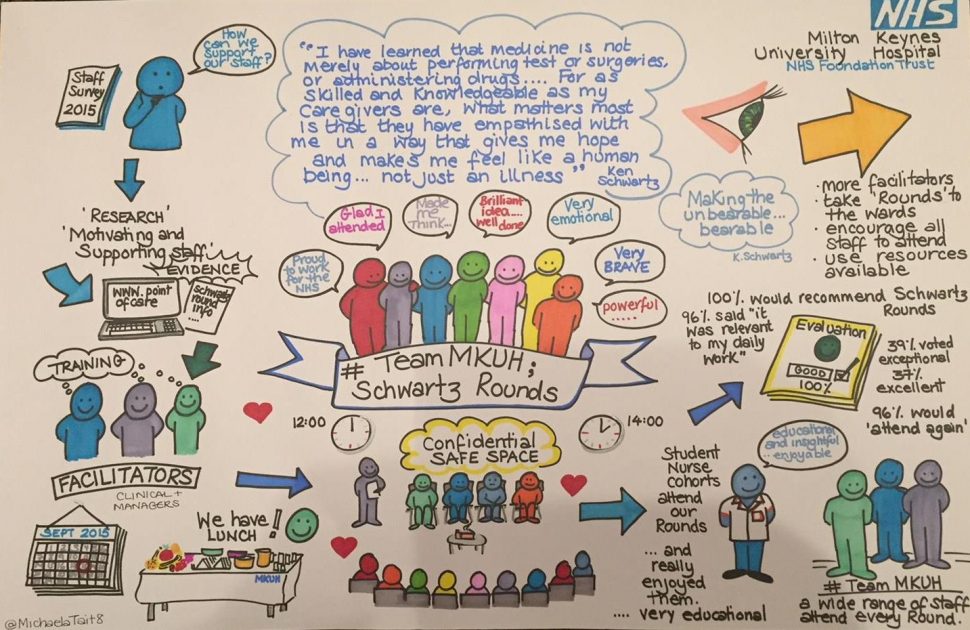 Staff
Survey
2015
How
can we
support
our staff?
"I have learned that medicine is not
merely about performing test or surgeries,
or administering drugs.... For as
skilled and knowledgeable as my
care givers are, what matters most
is that they have empathised with
me in a way that gives me hope
and makes me feel like a human
being... not just an illness"
Ken
Schwartz
NHS
Milton Keynes
University Hospital
NHS Foundation Trust
'RESEARCH'
'Motivating and
Supporting staff'
EVIDENCE
www.point
ofcare
Schwartz
round
info
....
TRAINING
FACILITATORS
CLINICAL +
MANAGERS
SEPT 2015
We have
LUNCH!
MKUH
@MichaelaTait8
Proud
to work
for the
NHS
Glad I
attended
Made
me
Think...
Brilliant
idea....
well done
Very
emotional
Very
BRAVE
powerful
.....
# Team MKUH;
Schwartz Rounds
12:00
14:00
Confidential
SAFE SPACE
Making the
unbearable...
bearable
K.Schwartz
· more facilitators
· take 'Rounds' to
the wards
· encourage all
staff to attend
· use resources
available
100% would recommend Schwartz
Rounds
96% said "it
was relevant
to my daily
work"
Evaluation
GOOD
100%
39% voted
exceptional
37%
excellent
96% would
'attend again'
Student
Nurse
cohorts
attend
our
Rounds
... and
really
enjoyed
them.
.... very educational
educational
and insightful
.. enjoyable
# Team MKUH
a wide range of staff
attend every Round.